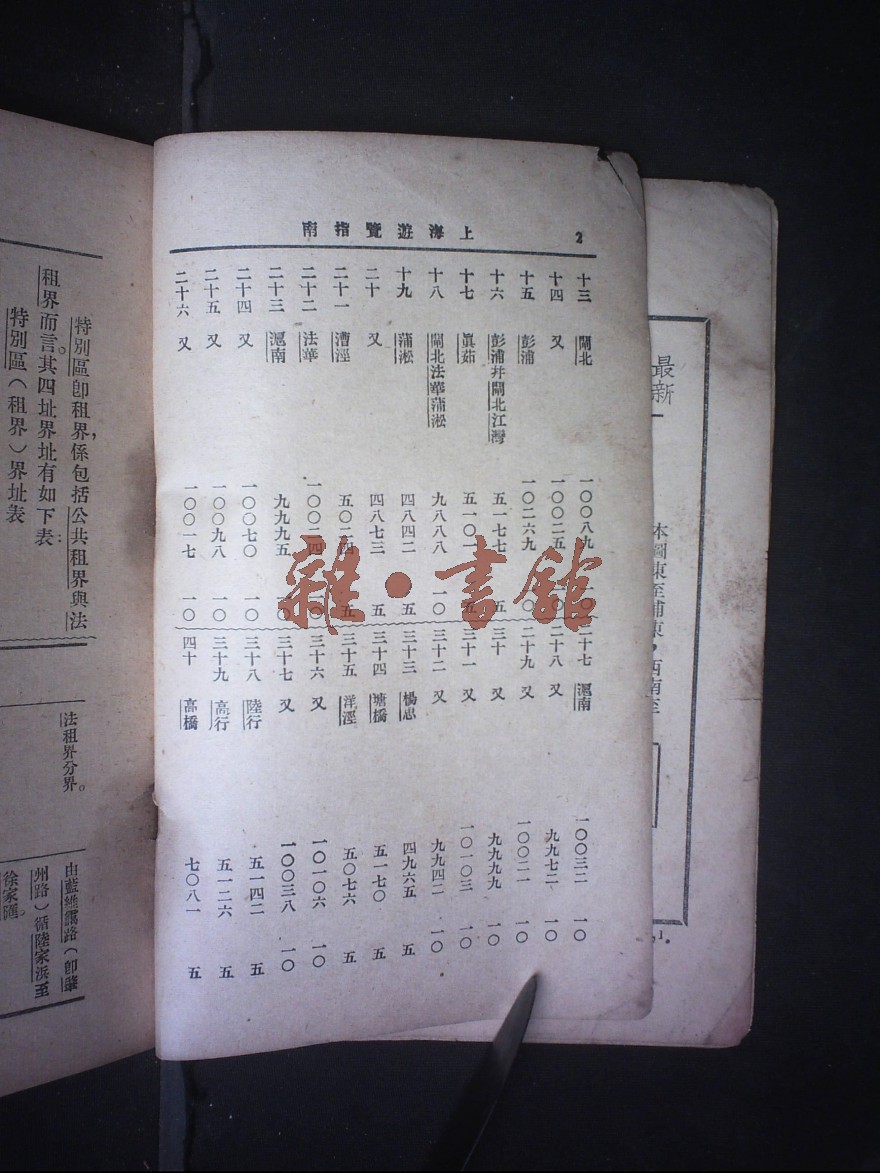 最新
本圖東至浦東，西南至
2 上海遊覽指南
十三 閘北 一〇〇八九 一〇
十四 又 一〇〇二五 一〇
十五 彭浦 一〇二六九 一〇
十六 彭浦并閘北江灣 五一七七 五
十七 眞茹 五一〇 五
十八 閘北法華蒲淞 九八八八 一〇
十九 蒲淞 四八四二 五
二十 又 四八七三 五
二十一 漕涇 五〇二四 五
二十二 法華 一〇〇二四 一〇
二十三 滬南 九九九五 一〇
二十四 又 一〇〇七〇 一〇
二十五 又 一〇〇九八 一〇
二十六 又 一〇〇一七 一〇
二十七 滬南 一〇〇三二 一〇
二十八 又 九九七二 一〇
二十九 又 一〇〇二一 一〇
三十 又 九九九九 一〇
三十一 又 一〇一〇三 一〇
三十二 又 九九四二 一〇
三十三 楊思 四九六五 五
三十四 塘橋 五一七〇 五
三十五 洋涇 五〇七六 五
三十六 又 一〇一〇六 一〇
三十七 又 一〇〇三八 一〇
三十八 陸行 五一四二 五
三十九 高行 五一二六 五
四十 高橋 七〇八一 五
雜·書館
特別區卽租界，係包括公共租界與法
租界而言。其四址界址有如下表：
特別區（租界）界址表
法租界分界。
由藍維靄路（卽肇
州路）循陸家浜至
徐家匯。